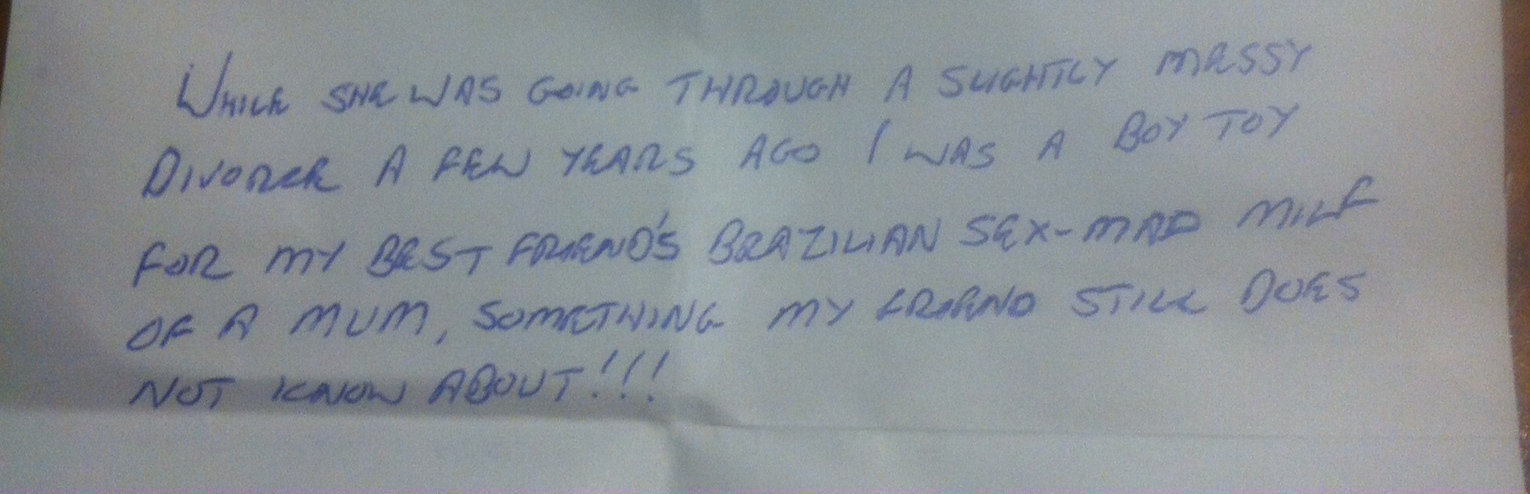 WHILE SHE WAS GOING THROUGH A SLIGHTLY MESSY
DIVORCE A FEW YEARS AGO I WAS A BOY TOY
FOR MY BEST FRIEND'S BRAZILIAN SEX-MAD MILF
OF A MUM, SOMETHING MY FRIEND STILL DOES
NOT KNOW ABOUT!!!